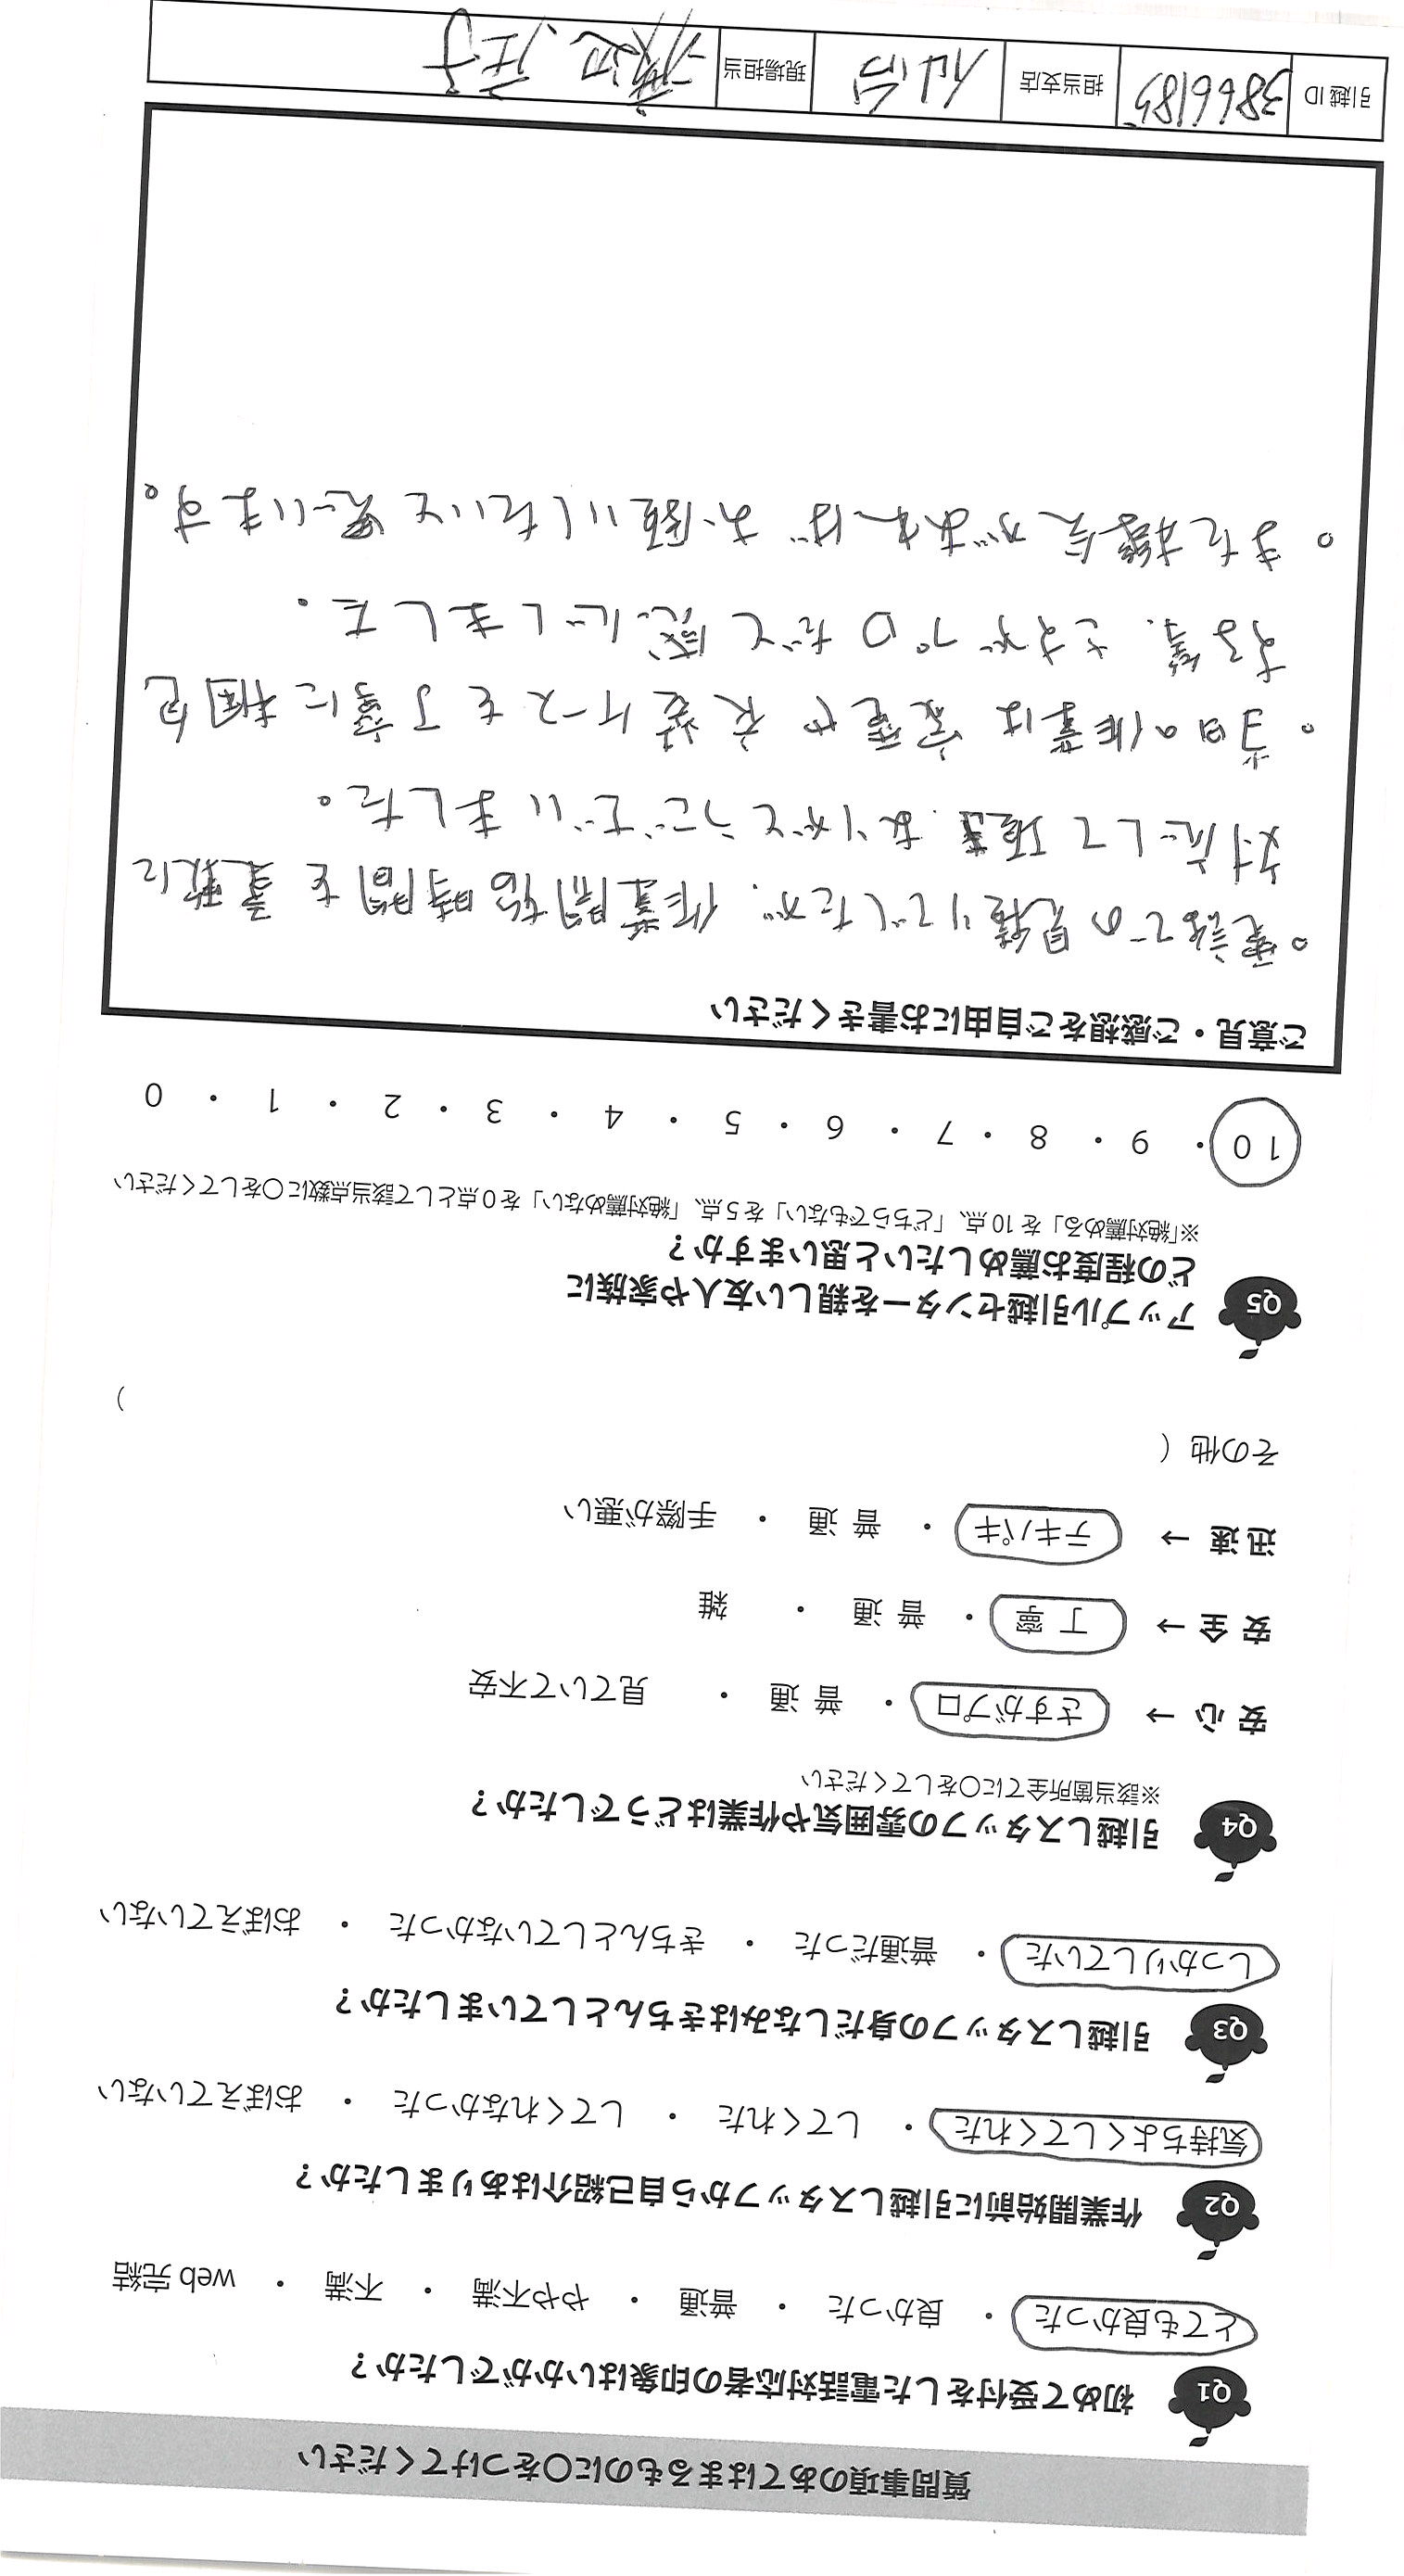 質問事項のあてはまるものに〇をつけてください
Q1 初めて受付をした電話対応者の印象はいかがでしたか？
とても良かった ・ 良かった ・ 普通 ・ やや不満 ・ 不満 ・ web 完結
Q2 作業開始前に引越しスタッフから自己紹介はありましたか？
気持ちよくしてくれた ・ してくれた ・ してくれなかった ・ おぼえていない
Q3 引越しスタッフの身だしなみはきちんとしていましたか？
しっかりしていた ・ 普通だった ・ きちんとしていなかった ・ おぼえていない
Q4 引越しスタッフの雰囲気や作業はどうでしたか？
※該当箇所全てに〇をしてください
安心 → さすがプロ ・ 普通 ・ 見ていて不安
安全 → 丁寧 ・ 普通 ・ 雑
迅速 → テキパキ ・ 普通 ・ 手際が悪い
その他（ ）
Q5 アップル引越センターを親しい友人や家族に
どの程度お薦めしたいと思いますか？
※「絶対薦める」を 10 点、「どちらでもない」を 5 点、「絶対薦めない」を 0 点として該当点数に〇をしてください
10 ・ 9 ・ 8 ・ 7 ・ 6 ・ 5 ・ 4 ・ 3 ・ 2 ・ 1 ・ 0
ご意見・ご感想をご自由にお書きください
。電話での見積りでしたが、作業開始時間を柔軟に
対応して頂き、ありがとうございました。
。当日の作業は家電や衣装ケースを丁寧に梱包
する等、さすがプロだと感じました。
。また機会があればお願いしたいと思います。
引越 ID 3866185 担当支店 仙台 現場担当 渡辺、庄子